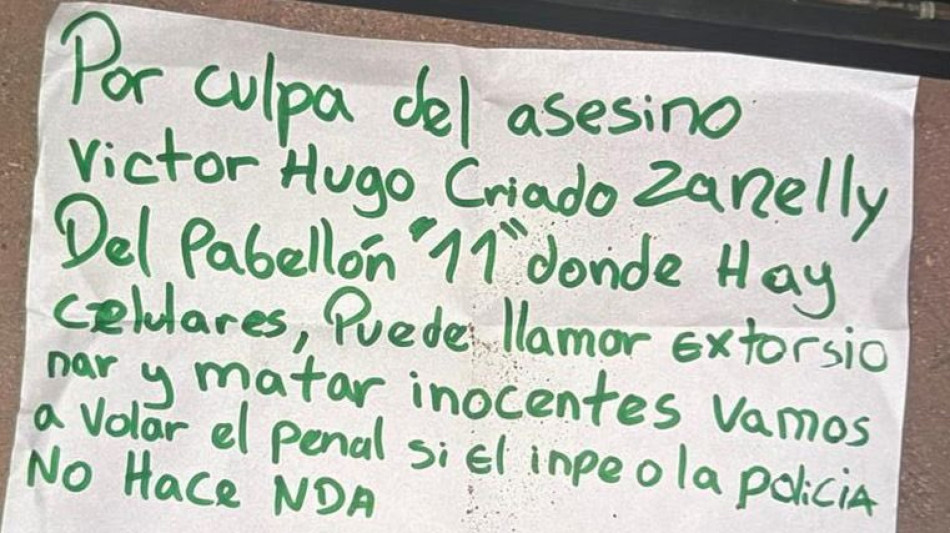 Por culpa del asesino
Victor Hugo Criado Zanelly
Del Pabellón "11" donde Hay
celulares, Puede llamar Extorsio
nar y matar inocentes Vamos
a Volar el penal si El inpe o la policia
No Hace NDA